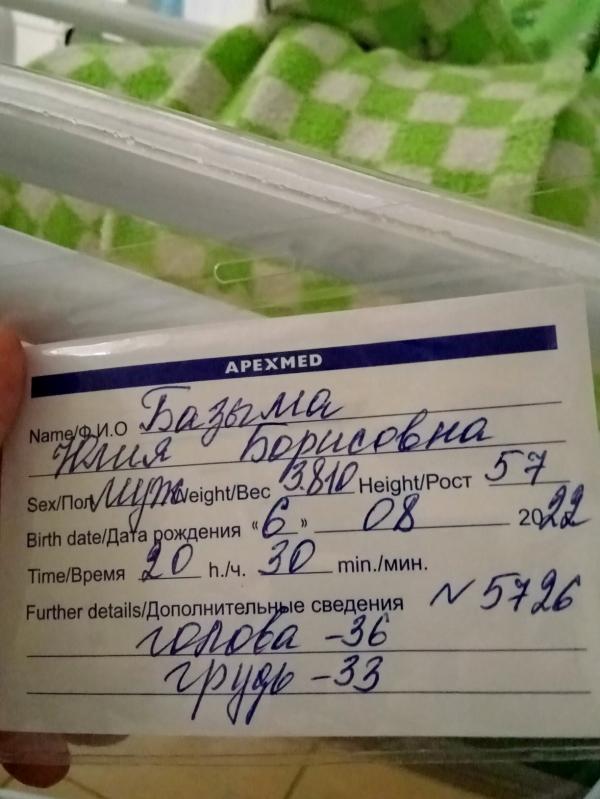 APEXMED
Name/Ф.И.О Базыма
Юлия Борисовна
Sex/Пол муж Weight/Вес 3.810 Height/Рост 57
Birth date/Дата рождения «6» 08 2022
Time/Время 20 h./ч. 30 min./мин.
Further details/Дополнительные сведения N 5726
голова -36
грудь -33